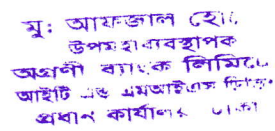 মু: আফজাল হো
উপমহাব্যবস্থাপক
অগ্রণী ব্যাংক লিমিটে
আইটি এন্ড এমআইএস
প্রধান কার্যালয় ঢাকা